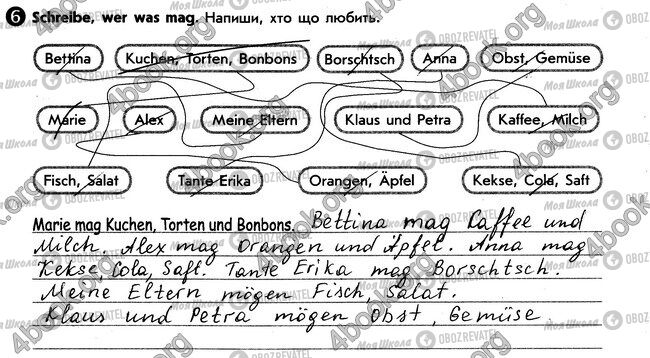 6 Schreibe, wer was mag. Напиши, хто що любить.
Bettina Kuchen, Torten, Bonbons Borschtsch Anna Obst, Gemüse
Marie Alex Meine Eltern Klaus und Petra Kaffee, Milch
Fisch, Salat Tante Erika Orangen, Äpfel Kekse, Cola, Saft
Marie mag Kuchen, Torten und Bonbons. Bettina mag Caffee und
Milch. Alex mag Orangen und Äpfel. Anna mag
Kekse, Cola, Saft. Tante Erika mag Borschtsch.
Meine Eltern mögen Fisch, Salat.
Klaus und Petra mögen Obst, Gemüse.